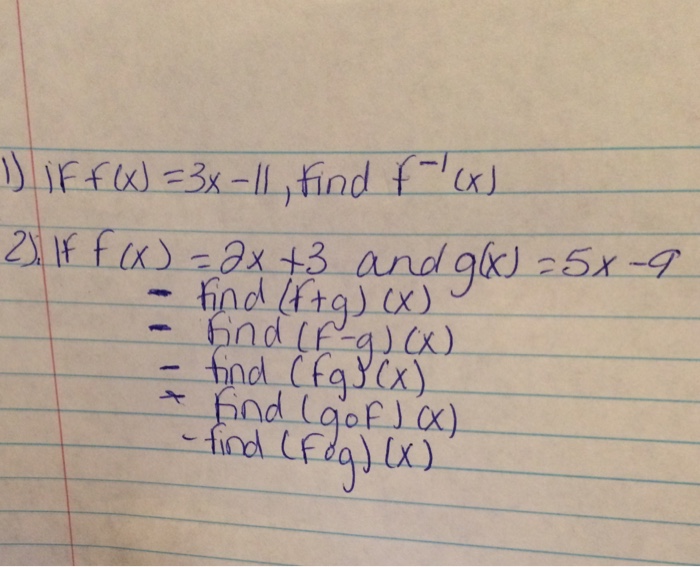 1) if f(x) = 3x - 11, find f⁻¹(x)
2). If f(x) = 2x + 3 and g(x) = 5x - 9
- find (f+g) (x)
- find (f-g) (x)
- find (fg) (x)
* find (gof) (x)
- find (fog) (x)